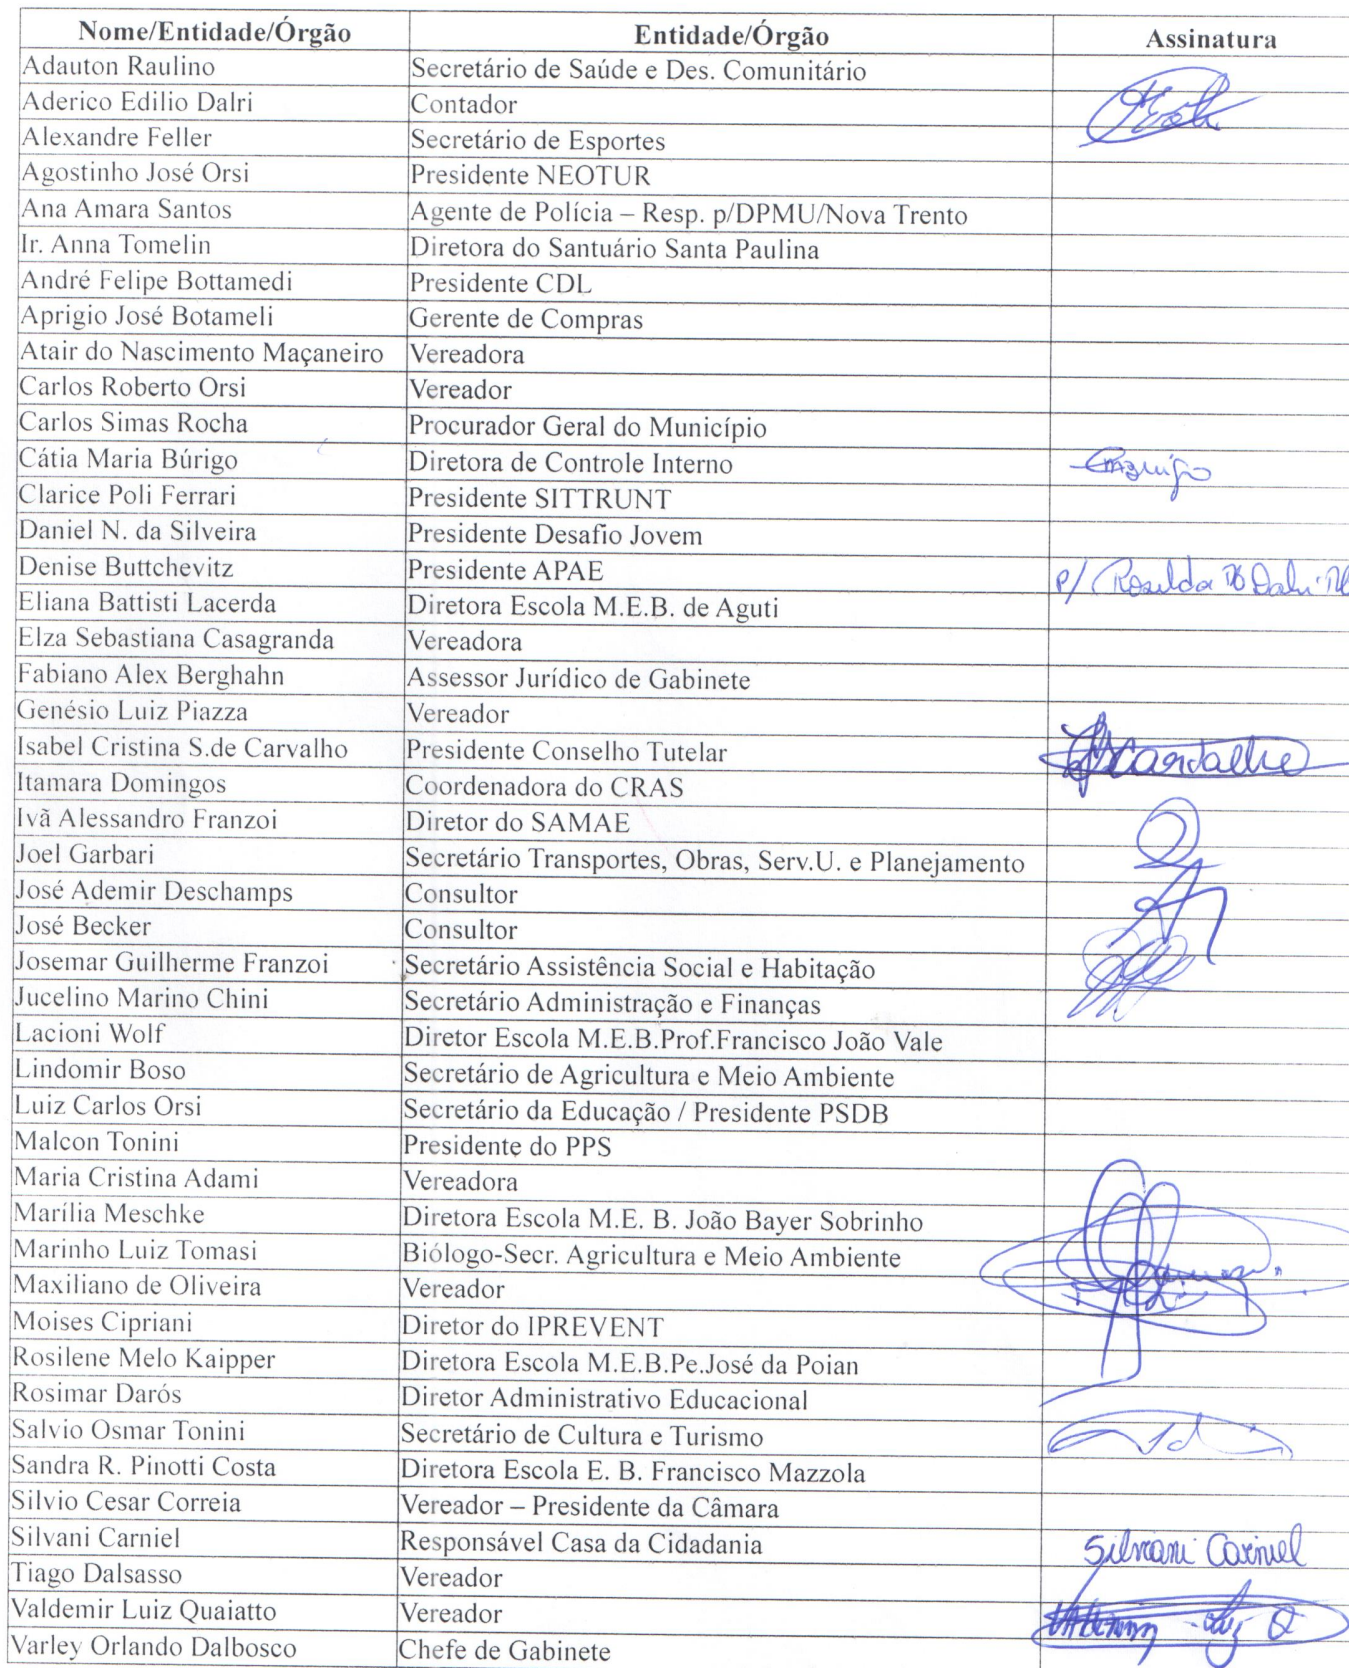 Nome/Entidade/Órgão Entidade/Órgão Assinatura
Adauton Raulino Secretário de Saúde e Des. Comunitário
Aderico Edilio Dalri Contador
Alexandre Feller Secretário de Esportes
Agostinho José Orsi Presidente NEOTUR
Ana Amara Santos Agente de Polícia – Resp. p/DPMU/Nova Trento
Ir. Anna Tomelin Diretora do Santuário Santa Paulina
André Felipe Bottamedi Presidente CDL
Aprigio José Botameli Gerente de Compras
Atair do Nascimento Maçaneiro Vereadora
Carlos Roberto Orsi Vereador
Carlos Simas Rocha Procurador Geral do Município
Cátia Maria Búrigo Diretora de Controle Interno
Clarice Poli Ferrari Presidente SITTRUNT
Daniel N. da Silveira Presidente Desafio Jovem
Denise Buttchevitz Presidente APAE p/
Eliana Battisti Lacerda Diretora Escola M.E.B. de Aguti
Elza Sebastiana Casagranda Vereadora
Fabiano Alex Berghahn Assessor Jurídico de Gabinete
Genésio Luiz Piazza Vereador
Isabel Cristina S.de Carvalho Presidente Conselho Tutelar Carvalho
Itamara Domingos Coordenadora do CRAS
Ivã Alessandro Franzoi Diretor do SAMAE
Joel Garbari Secretário Transportes, Obras, Serv.U. e Planejamento
José Ademir Deschamps Consultor
José Becker Consultor
Josemar Guilherme Franzoi Secretário Assistência Social e Habitação
Jucelino Marino Chini Secretário Administração e Finanças
Lacioni Wolf Diretor Escola M.E.B.Prof.Francisco João Vale
Lindomir Boso Secretário de Agricultura e Meio Ambiente
Luiz Carlos Orsi Secretário da Educação / Presidente PSDB
Malcon Tonini Presidente do PPS
Maria Cristina Adami Vereadora
Marília Meschke Diretora Escola M.E. B. João Bayer Sobrinho
Marinho Luiz Tomasi Biólogo-Secr. Agricultura e Meio Ambiente
Maxiliano de Oliveira Vereador
Moises Cipriani Diretor do IPREVENT
Rosilene Melo Kaipper Diretora Escola M.E.B.Pe.José da Poian
Rosimar Darós Diretor Administrativo Educacional
Salvio Osmar Tonini Secretário de Cultura e Turismo
Sandra R. Pinotti Costa Diretora Escola E. B. Francisco Mazzola
Silvio Cesar Correia Vereador – Presidente da Câmara
Silvani Carniel Responsável Casa da Cidadania Silvani Carniel
Tiago Dalsasso Vereador
Valdemir Luiz Quaiatto Vereador
Varley Orlando Dalbosco Chefe de Gabinete